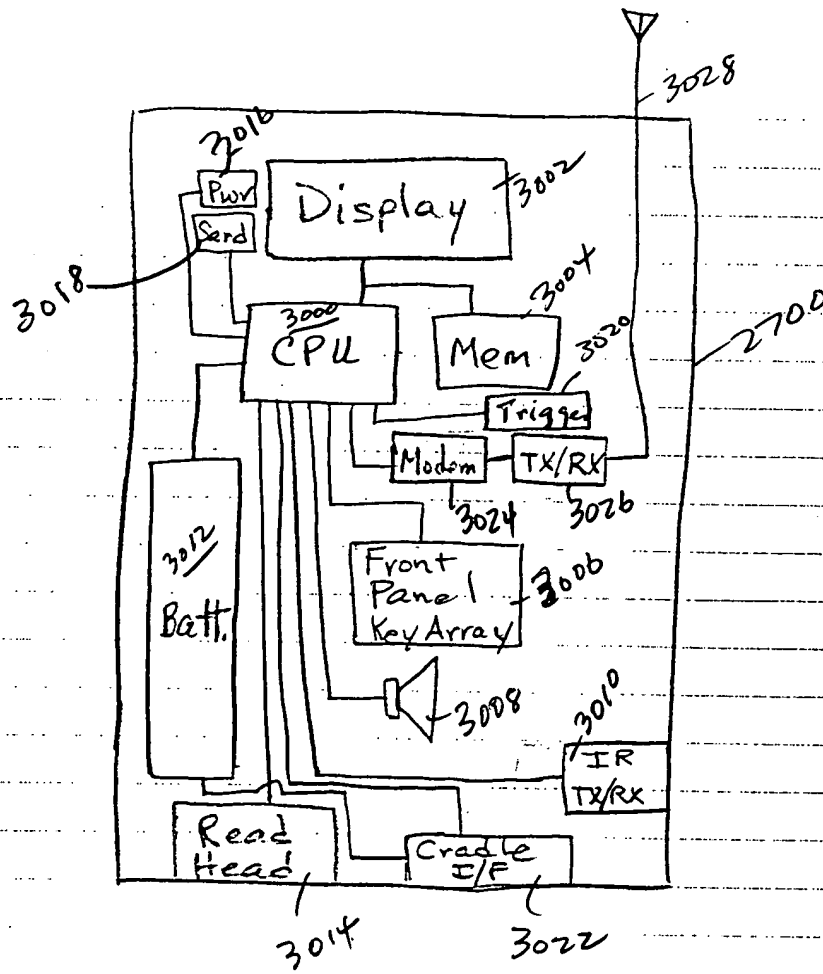 3028
3016
Pwr
Send
3018
Display
3002
3004
Mem
3000
CPU
2700
3020
Trigger
Modem
TX/RX
3024
3026
3012
Batt.
Front
Panel
Key Array
3006
3008
3010
IR
TX/RX
Read
Head
Cradle
I/F
3014
3022